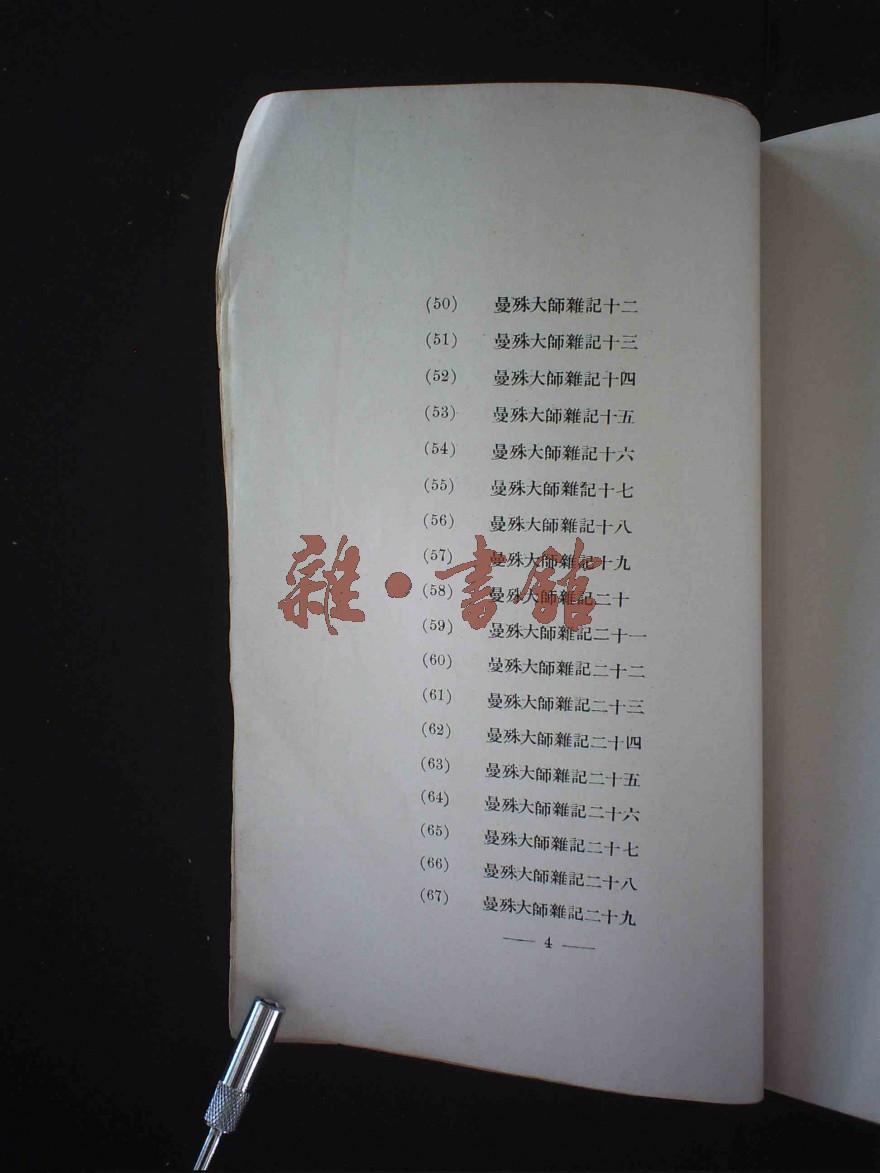 (50) 曼殊大師雜記十二
(51) 曼殊大師雜記十三
(52) 曼殊大師雜記十四
(53) 曼殊大師雜記十五
(54) 曼殊大師雜記十六
(55) 曼殊大師雜記十七
(56) 曼殊大師雜記十八
(57) 曼殊大師雜記十九
(58) 曼殊大師雜記二十
(59) 曼殊大師雜記二十一
(60) 曼殊大師雜記二十二
(61) 曼殊大師雜記二十三
(62) 曼殊大師雜記二十四
(63) 曼殊大師雜記二十五
(64) 曼殊大師雜記二十六
(65) 曼殊大師雜記二十七
(66) 曼殊大師雜記二十八
(67) 曼殊大師雜記二十九
— 4 —
雜·書館